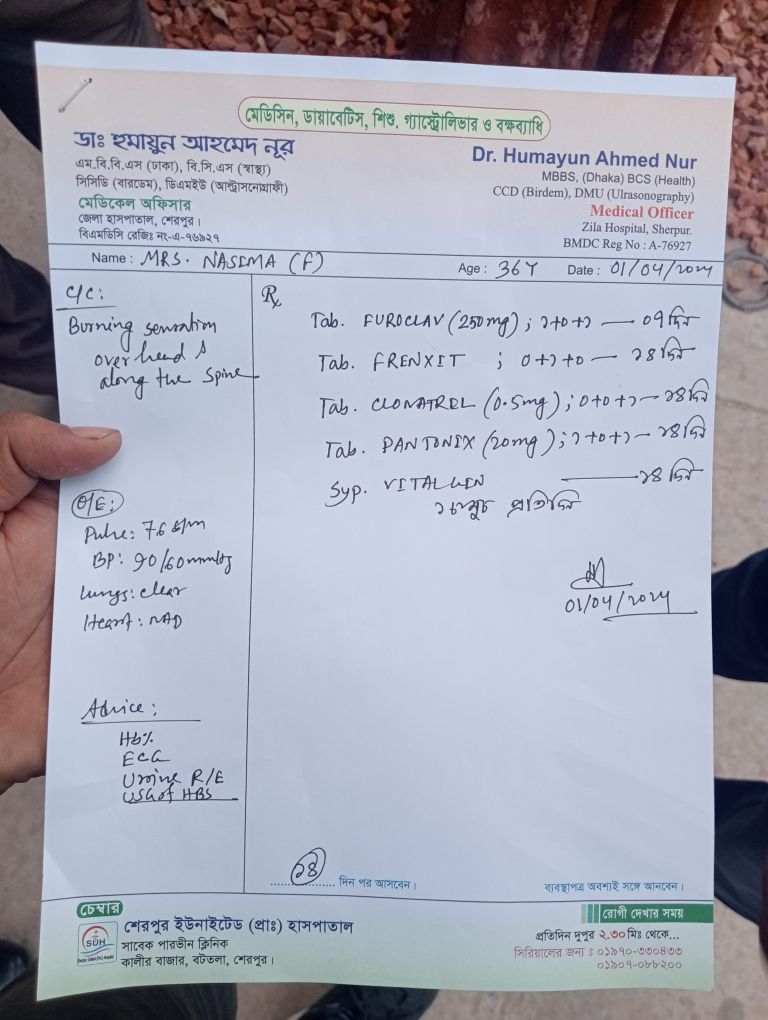 মেডিসিন, ডায়াবেটিস, শিশু, গ্যাস্ট্রোলিভার ও বক্ষব্যাধি
ডাঃ হুমায়ুন আহমেদ নূর
এম.বি.বি.এস (ঢাকা), বি.সি.এস (স্বাস্থ্য)
সিসিডি (বারডেম), ডিএমইউ (আল্ট্রাসনোগ্রাফী)
মেডিকেল অফিসার
জেলা হাসপাতাল, শেরপুর।
বিএমডিসি রেজিঃ নং-এ-৭৬৯২৭
Dr. Humayun Ahmed Nur
MBBS, (Dhaka) BCS (Health)
CCD (Birdem), DMU (Ulrasonography)
Medical Officer
Zila Hospital, Sherpur.
BMDC Reg No : A-76927
Name : MRS. NASIMA (F) Age : 36Y Date : 01/04/2024
C/C:
Burning sensation
over head &
along the spine
O/E:
Pulse: 76 b/m
BP: 90/60mmHg
Lungs: clear
Heart: NAD
Advice:
Hb%
ECG
Urine R/E
USG of HBS
Rx
Tab. FUROCLAV (250mg) ; ১+০+১ — ০৭ দিন
Tab. FRENXIT ; ০+১+০ — ১৪ দিন
Tab. CLONATREL (0.5mg) ; ০+০+১ — ১৪ দিন
Tab. PANTONIX (20mg) ; ১+০+১ — ১৪ দিন
Syp. VITALGIN — ১৪ দিন
প্রতিদিন
01/04/2024
১৪ দিন পর আসবেন।
ব্যবস্থাপত্র অবশ্যই সঙ্গে আনবেন।
চেম্বার
SUH
শেরপুর ইউনাইটেড (প্রাঃ) হাসপাতাল
সাবেক পারভীন ক্লিনিক
কালীর বাজার, বটতলা, শেরপুর।
রোগী দেখার সময়
প্রতিদিন দুপুর ২.৩০ মিঃ থেকে...
সিরিয়ালের জন্য : ০১৯১০-৩৩০৪৩৩
০১৯০৭-০৮৮২০০